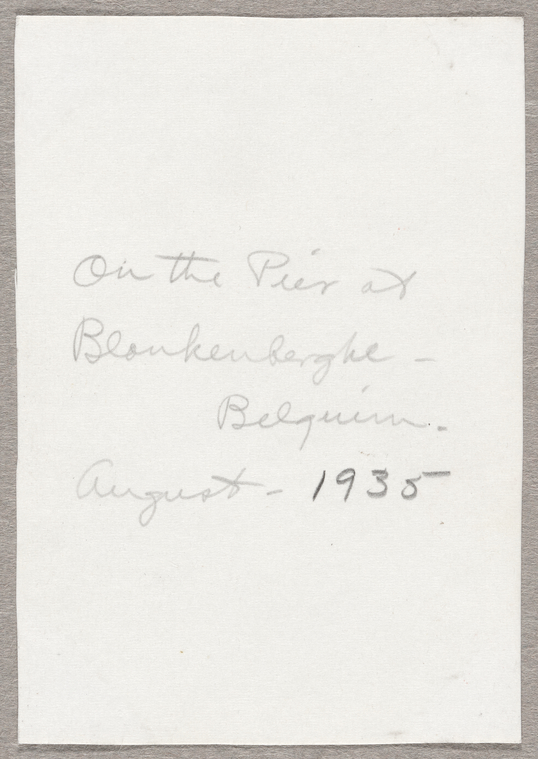 On the Pier at
Blankenberghe -
Belguim.
August - 1935